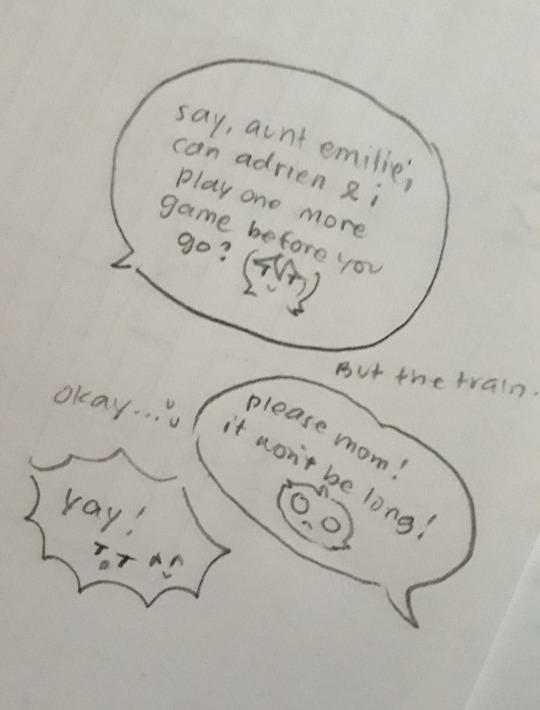 say, aunt emilie,
can adrien & i
play one more
game before you
go?
But the train.
please mom!
it won't be long!
okay...
yay!